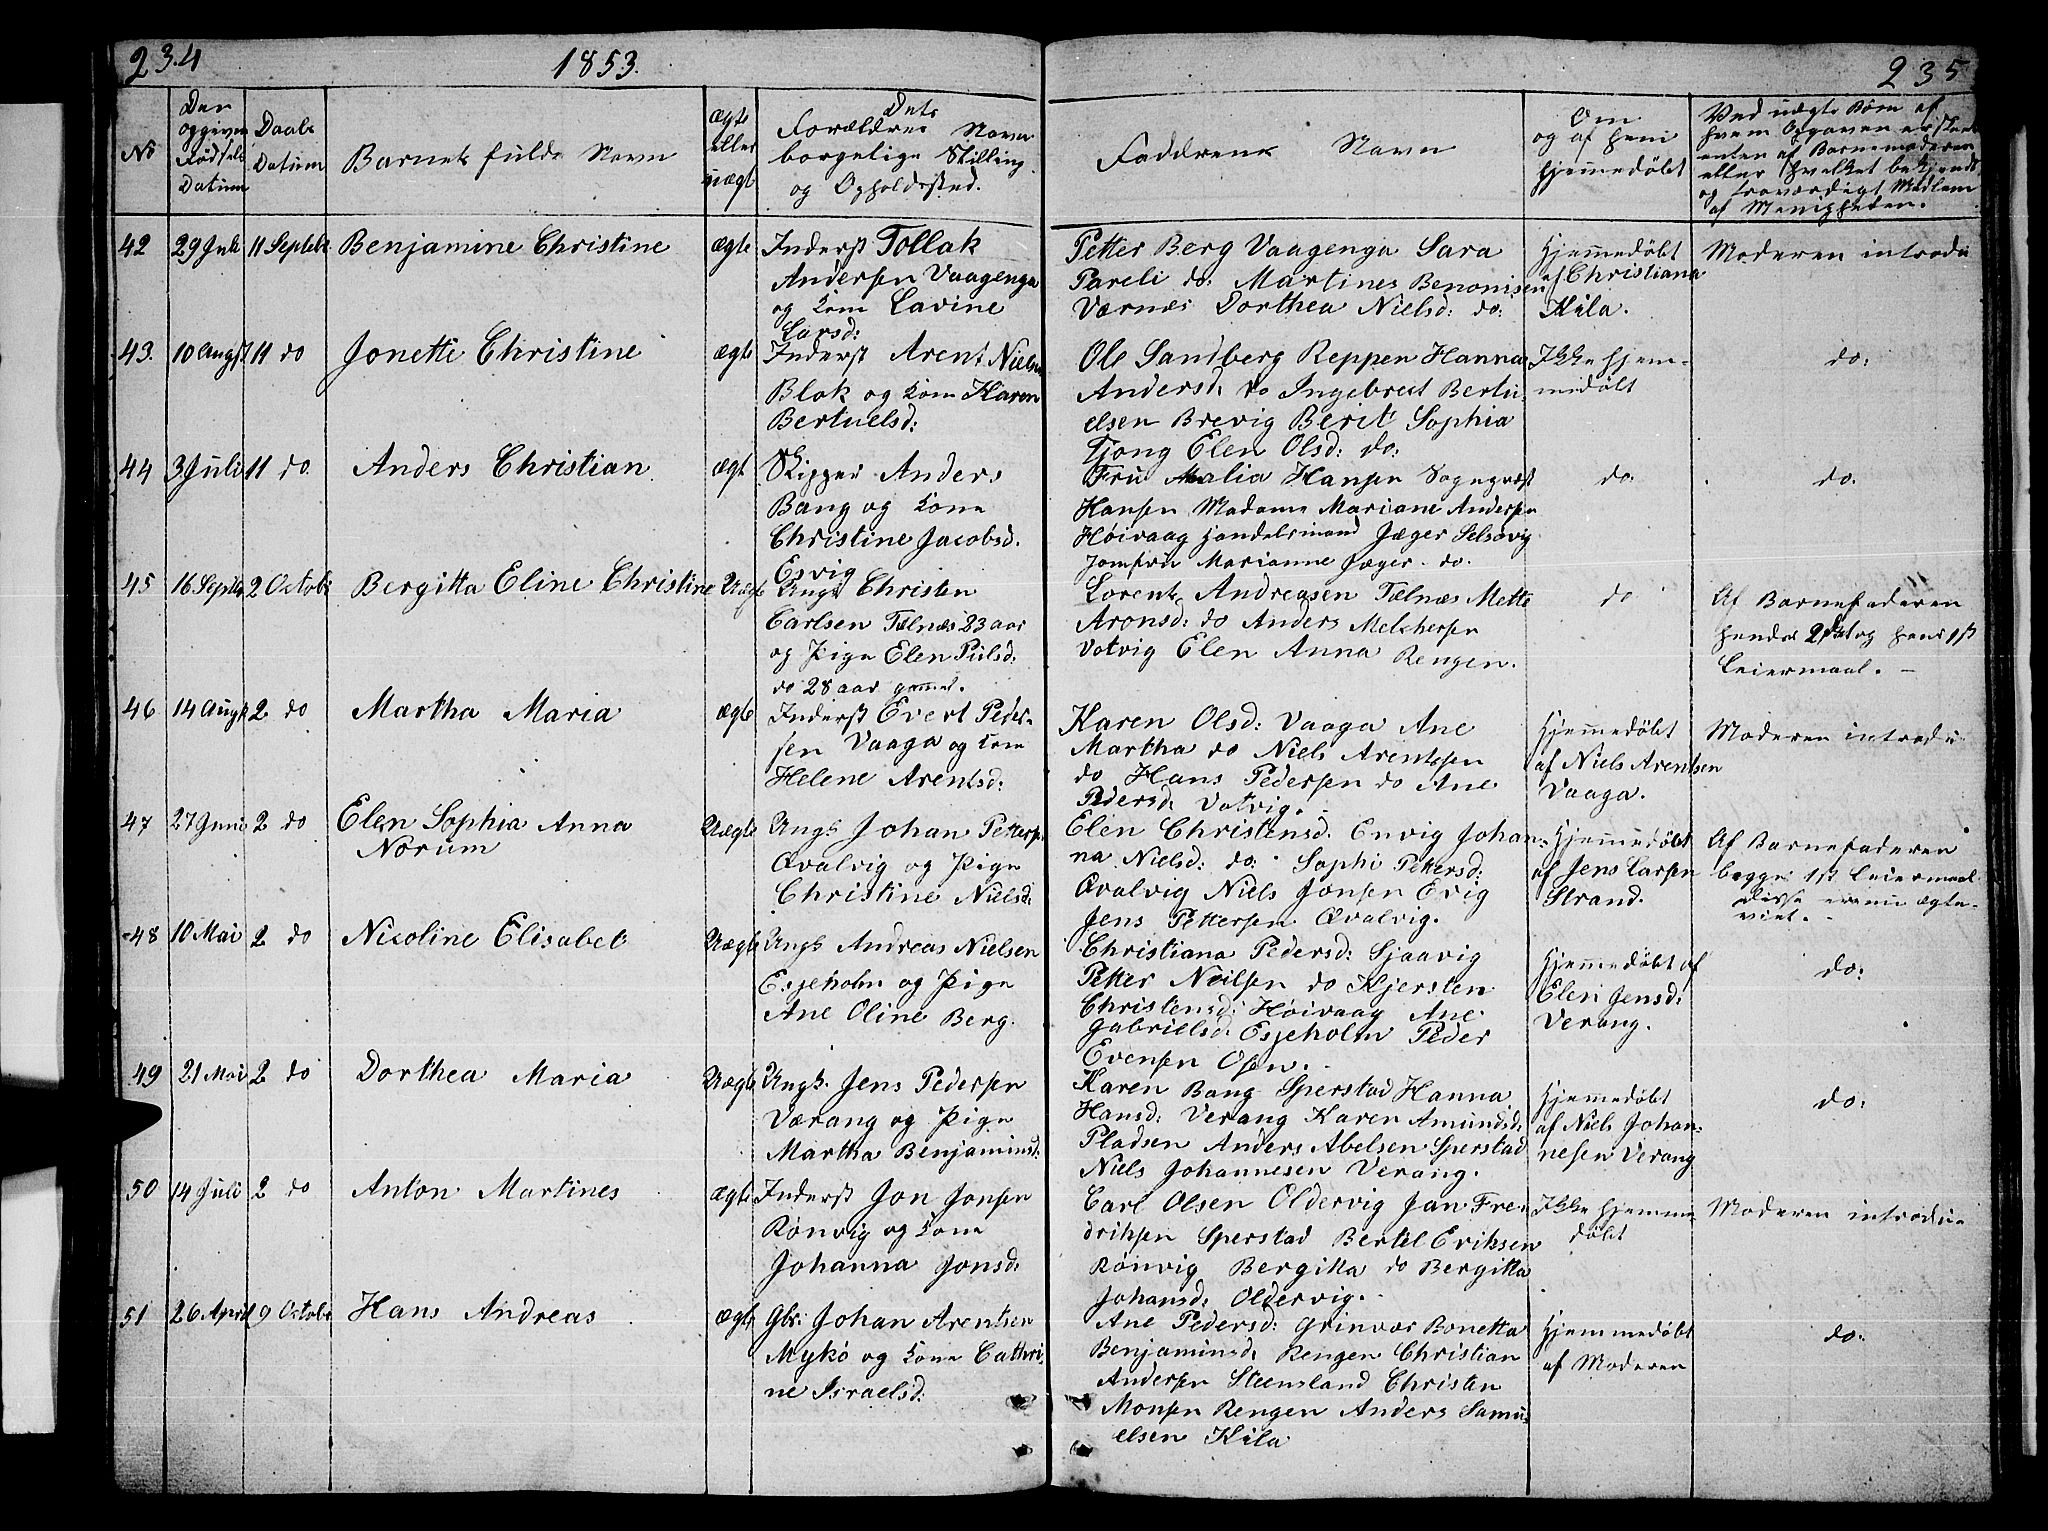 234
1853.
235
No
Den opgivne Fødsels Datum
Daabs Datum
Barnets fulde Navn
Ægte eller uægt
Dets Forældres Navn borgelige Stilling og Opholdssted.
Faddrenes Navn
Om og af hvem hjemmedøbt
Ved uægte Børn af hvem Opgaven er skeet enten af Barnemoderen eller hvilket bekjendt og troværdigt Medlem af Menigheden.
42 29 Juli 11 Septebr Benjamine Christine ægte
Inderst Tollak
Andersen Vaagenga
og Kone Lavine
Larsd:
Petter Berg Vaagenga Sara
Pareli do: Martines Benonisen
Værnes Dorthea Nielsd: do:
Hjemmedøbt
af Christiana
Kila.
Moderen introdu
43. 10 Augst 11 do Jonetti Christine ægte
Inderst Arent Nielsen
Blok og Kone Karen
Bertuelsd:
Ole Sandberg Reppen Hanna
Andersd: do Ingebrect Bertu
elsen Brevig Berit Sophia
Tjong Elen Olsd: do:
Ikke hjem-
medøbt
do:
44 3 Juli 11 do Anders Christian ægt
Skipper Anders
Bang og Kone
Christine Jacobsd.
Esvig
Fru Malia Hansen Sogneprest
Hansen Madame Mariane Andersen
Høivaag Handelsmand Jæger Selsøvig
Jomfru Marianne Jæger do.
do:
do:
45 16 Septbr 2 Octobr Bergitta Eline Christine Uægte
Ungk Christen
Carlsen Telnæs 23 aar
og Pige Elen Pulsd:
do 28 aar gammel.
Lorents Andreasen Telnæs Mette
Aronsd: do Anders Melchersen
Votvig Elen Anna Rengen.
do
Af Barnefaderen
hendes 2det og hans 1st
Leiermaal. -
46 14 Augst 2 do Martha Maria ægte
Inderst Evert Peder-
sen Vaaga og Kone
Helene Arentsd:
Karen Olsd: Vaaga Ane
Martha do Niels Arentsen
do Hans Pedersen do Ane
Pedersd: Votvig.
Hjemmedøbt
af Niels Arentsen
Vaaga.
Moderen introdu
47 27 Juni 2 do Elen Sophia Anna
Norum
Uægte
Ungk Johan Pettersen
Qvalvig og Pige
Christine Nielsd:
Elen Christensd: Envig Johan:
na Nielsd: do: Sophi Pettersd:
Qvalvig Niels Jonsen Evig
Jens Pettersen Qvalvig.
Hjemmedøbt
af Jens Larsen
Strand.
Af Barnefaderen
begges 1st Leiermaal
disse ere nu ægte-
viet.
48 10 Mai 2 do Nicoline Elisabet Uægte
Ungk Andreas Nielsen
Esjeholm og Pige
Ane Oline Berg.
Christiana Pedersd: Sjaavig
Petter Neilsen do Kjersten
Christensd: Høivaag Ane
Gabrielsd: Esjeholm Peder
Evensen Osen.
Hjemmedøbt af
Elen Jensd:
Verang.
do:
49 21 Mai 2 do Dorthea Maria Uægte
Ungk. Jens Pedersen
Værang og Pige
Martha Benjaminsd:
Karen Bang Sperstad Hanna
Hansd: Verang Karen Amundsd:
Pladsen Anders Abelsen Sperstad
Niels Johannesen Verang.
Hjemmedøbt
af Niels Johan-
nesen Verang
do:
50 14 Juli 2 do Anton Martines ægte
Inderst Jon Jonsen
Rønvig og Kone
Johanna Jonsd:
Carl Olsen Oldervig Jan Fre-
driksen Sperstad Bertel Eriksen
Rønvig Bergitta do Bergitta
Johansd: Oldervig.
Ikke hjemme-
døbt
Moderen introdu-
51 26 April 9 Octobr Hans Andreas ægte
Gbr: Johan Arentsen
Mykø og Kone Cathri-
ne Israelsd:
Ane Pedersd: Grinvor Bonetta
Benjaminsd: Rengen Christian
Andersen Steensland Christen
Monsen Rengen Anders Samu-
elsen Kila
Hjemmedøbt
af Moderen
do: